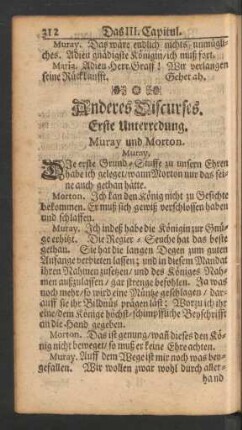 312 Das III. Capitul.
Muray. Das wäre endlich nichts unmügli-
ches. Adieu gnädigste Königin, ich muß fort.
Maria. Adieu Herr Graff! Wir verlangen
seine Rückkunfft. Gehet ab.
Anderes Discurses.
Erste Unterredung.
Muray und Morton.
Muray.
DIe erste Grund-Stuffe zu unsern Ehren
habe ich geleget, wann Morton nur das sei-
ne auch gethan hätte.
Morton. Ich kan den König nicht zu Gesichte
bekommen. Er muß sich gewiß verschlossen haben
und schlaffen.
Muray. Ich indeß habe die Königin zur Gnü-
ge erhitzt. Die Regier-Seuche hat das beste
gethan. Sie hat die langen Degen zum guten
Anfange verbieten lassen; und in diesem Mandat
ihren Nahmen zusetzen / und des Königes Nah-
men auszulassen / gar strenge befohlen. Ja was
noch mehr / so wird eine Müntze geschlagen / dar-
auff sie ihr Bildnüs prägen läst: Worzu ich ihr
eine / dem Könige höchst-schimpffliche Beyschrifft
an die Hand gegeben.
Morton. Das ist genung / wañ dieses den Kö-
nig nicht beweget / so muß er keine Ehre achten.
Muray. Auff dem Wege ist mir noch was bey-
gefallen. Wir wollen zwar wohl durch aller-
hand